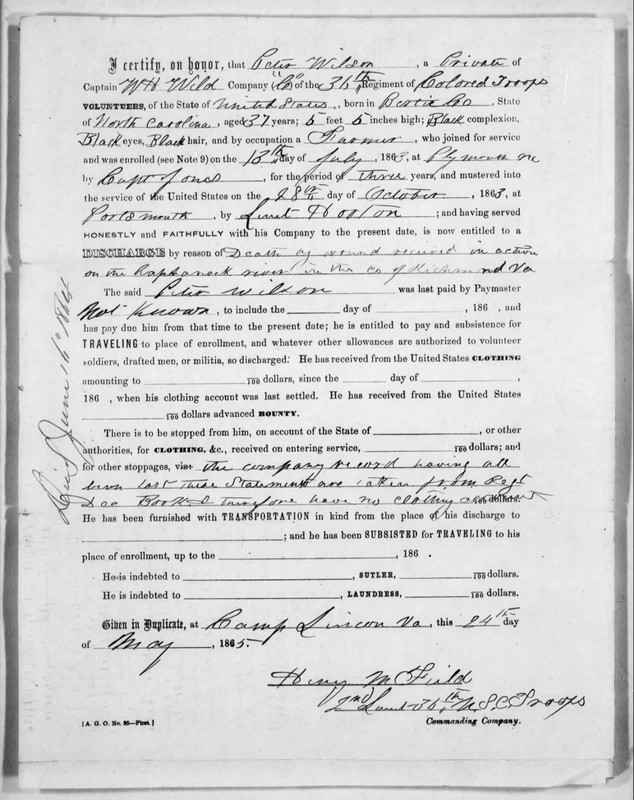 I certify, on honor, that Peter Wilson, a Private of
Captain W H Wild Company "C" of the 36th Regiment of Colored Troops
VOLUNTEERS, of the State of United States, born in Bertie Co, State
of North Carolina, aged 37 years; 5 feet 5 inches high; Black complexion,
Black eyes, Black hair, and by occupation a Farmer, who joined for service
and was enrolled (see Note 9) on the 13th day of July, 1863, at Plymouth NC
by Capt Jones, for the period of three years, and mustered into
the service of the United States on the 28th day of October, 1863, at
Portsmouth, by Lieut; and having served
HONESTLY and FAITHFULLY with his Company to the present date, is now entitled to a
DISCHARGE by reason of Death by wound received in action
on the Raphanock river in the co of Richmond Va
The said Peter Wilson was last paid by Paymaster
Not Known, to include the day of , 186 , and
has pay due him from that time to the present date; he is entitled to pay and subsistence for
TRAVELING to place of enrollment, and whatever other allowances are authorized to volunteer
soldiers, drafted men, or militia, so discharged. He has received from the United States CLOTHING
amounting to 100 dollars, since the day of ,
186 , when his clothing account was last settled. He has received from the United States
100 dollars advanced BOUNTY.
There is to be stopped from him, on account of the State of , or other
authorities, for CLOTHING, &c., received on entering service, 100 dollars; and
for other stoppages, viz: the company record having all
been lost these Statements are taken from Regt
Des Book I therefore have no clothing account 100 dollars.
He has been furnished with TRANSPORTATION in kind from the place of his discharge to
; and he has been SUBSISTED for TRAVELING to his
place of enrollment, up to the , 186 .
He is indebted to , SUTLER, 100 dollars.
He is indebted to , LAUNDRESS, 100 dollars.
Given in Duplicate, at Camp Lincon Va, this 24th day
of May, 1865.
Henry M Field
2nd Lieut 36th U.S.C Troops
Commanding Company.
[A. G. O. No. 95—First.]
Died June 16" 1864